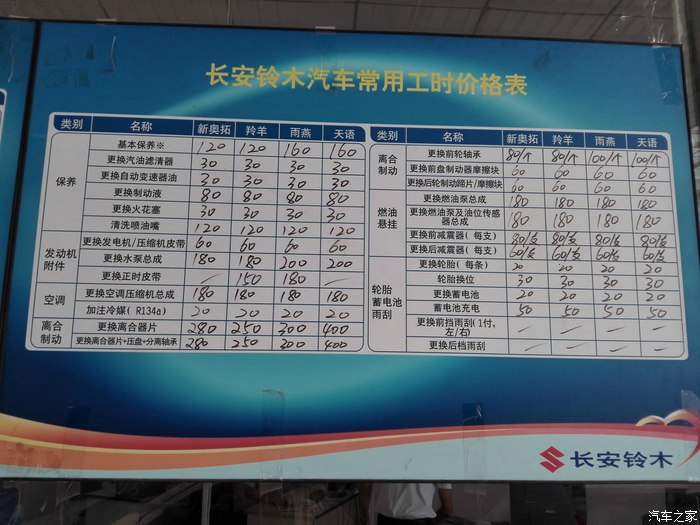 长安铃木汽车常用工时价格表
类别 名称 新奥拓 羚羊 雨燕 天语
保养
基本保养※ 120 120 160 160
更换汽油滤清器 30 30 30 30
更换自动变速器油 30 30 30 30
更换制动液 80 80 80 80
更换火花塞 30 30 30 30
清洗喷油嘴 120 120 120 120
发动机附件
更换发电机/压缩机皮带 60 60 60 60
更换水泵总成 180 180 200 200
更换正时皮带 — 150 180 —
空调
更换空调压缩机总成 180 180 180 180
加注冷媒(R134a) 20 20 20 20
离合制动
更换离合器片 280 250 300 400
更换离合器片+压盘+分离轴承 280 250 300 400
类别 名称 新奥拓 羚羊 雨燕 天语
离合制动
更换前轮轴承 80/个 80/个 100/个 100/个
更换前盘制动器摩擦块 60 60 60 60
更换后轮制动蹄片/摩擦块 60 60 60 60
燃油悬挂
更换燃油泵总成 180 180 180 180
更换燃油泵及油位传感器总成 180 180 180 180
更换前减震器(每支) 80/支 80/支 80/支 80/支
更换后减震器(每支) 60/支 60/支 60/支 60/支
轮胎蓄电池雨刮
更换轮胎(每条) 20 20 20 20
轮胎换位 30 30 30 30
更换蓄电池 20 20 20 20
蓄电池充电 50 50 50 50
更换前挡雨刮(1付,左/右) — — — —
更换后档雨刮 — — — —
长安铃木
汽车之家